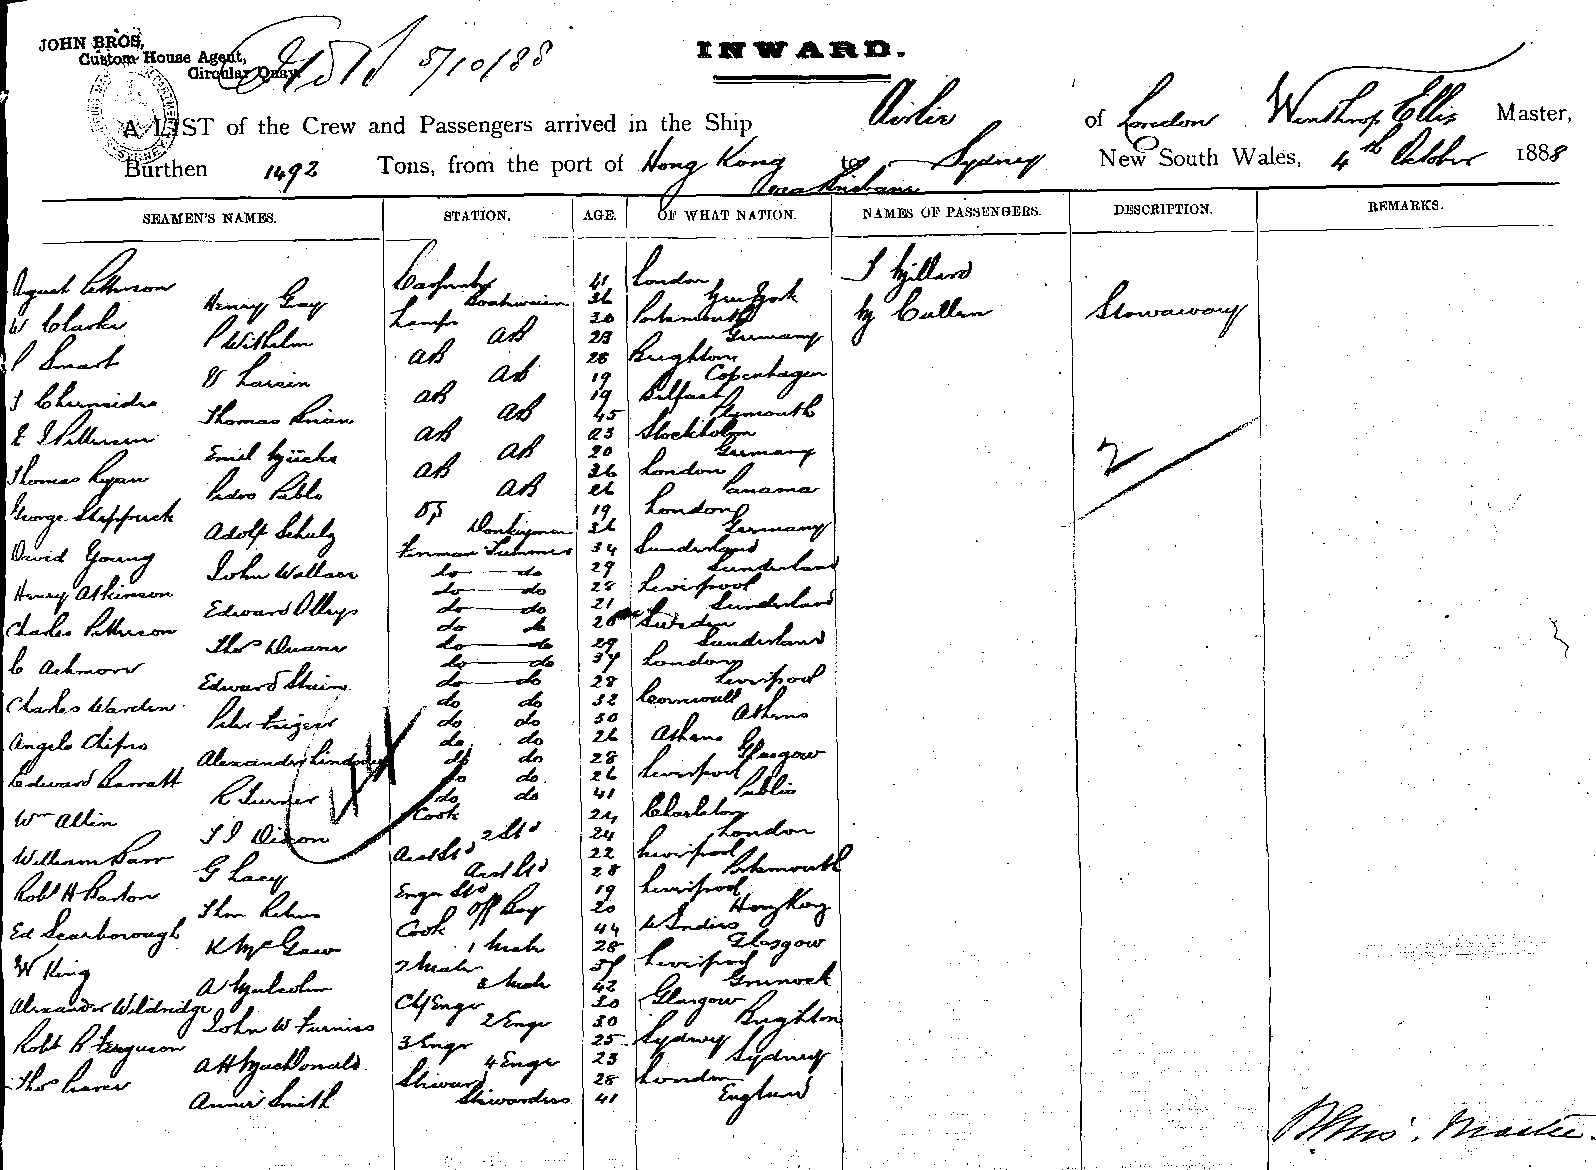 JOHN BROS,
Custom House Agent,
Circular Quay.
5/10/88
INWARD.
A LIST of the Crew and Passengers arrived in the Ship Airlie of London Winthrop Ellis Master,
Burthen 1492 Tons, from the port of Hong Kong to Sydney New South Wales, 4th October 1888
SEAMEN'S NAMES. STATION. AGE. OF WHAT NATION. NAMES OF PASSENGERS. DESCRIPTION. REMARKS.
August Petterson Carpenter 41 London J Hillard
Henry Gray Boatswain 36 New York
W Clarke Lamps 30 Portsmouth Cullen Stowaway
P Wilhelm AB 23 Germany
P Smart AB 28 Brighton
Larsen AB 19 Copenhagen
J Chirnside AB 19 Belfast
Thomas Brian AB 45 Plymouth
E J Petterson AB 23 Stockholm
Emil AB 20 Germany
Thomas Ryan AB 36 London 2
Pedro Pablo AB 26 Panama
George 19 London
Adolf Schulz Donkeyman 36 Germany
David Young Fireman Trimmer 34 Sunderland
John Wallace do do 29 Sunderland
Henry Atkinson do do 28 Liverpool
Edward do do 21 Sunderland
Charles Petterson do do 26 Sweden
Thos Duane do do 29 Sunderland
C Ashmore do do 37 London
Edward do do 28 Liverpool
Charles Warden do do 32 Cornwall
Peter do do 30 Athens
Angelo do do 26 Athens
Alexander Lindsay do do 28 Glasgow
Edward Barratt do do 26 Liverpool
R Turner do do 41 Public
Wm Allin Cook 24 Charleston
T J Dixon 2 Std 24 London
William Barr Asst Std 22 Liverpool
G Lacy Asst Std 28 Portsmouth
Robt H Barton Engr Std 19 Liverpool
Thos Off Boy 20 Hong Kong
Ed Scarborough Cook 44 W Indies
K McGaw 1 Mate 28 Glasgow
W King 2 Mate 37 Liverpool
A Malcolm 3 Mate 42 Greenock
Alexander Wildridge Ch Engr 30 Glasgow
John W Furniss 2 Engr 30 Brighton
Robt B Ferguson 3 Engr 25 Sydney
A H MacDonald 4 Engr 23 Sydney
Thos Steward 28 London
Annie Smith Stewardess 41 England
Master